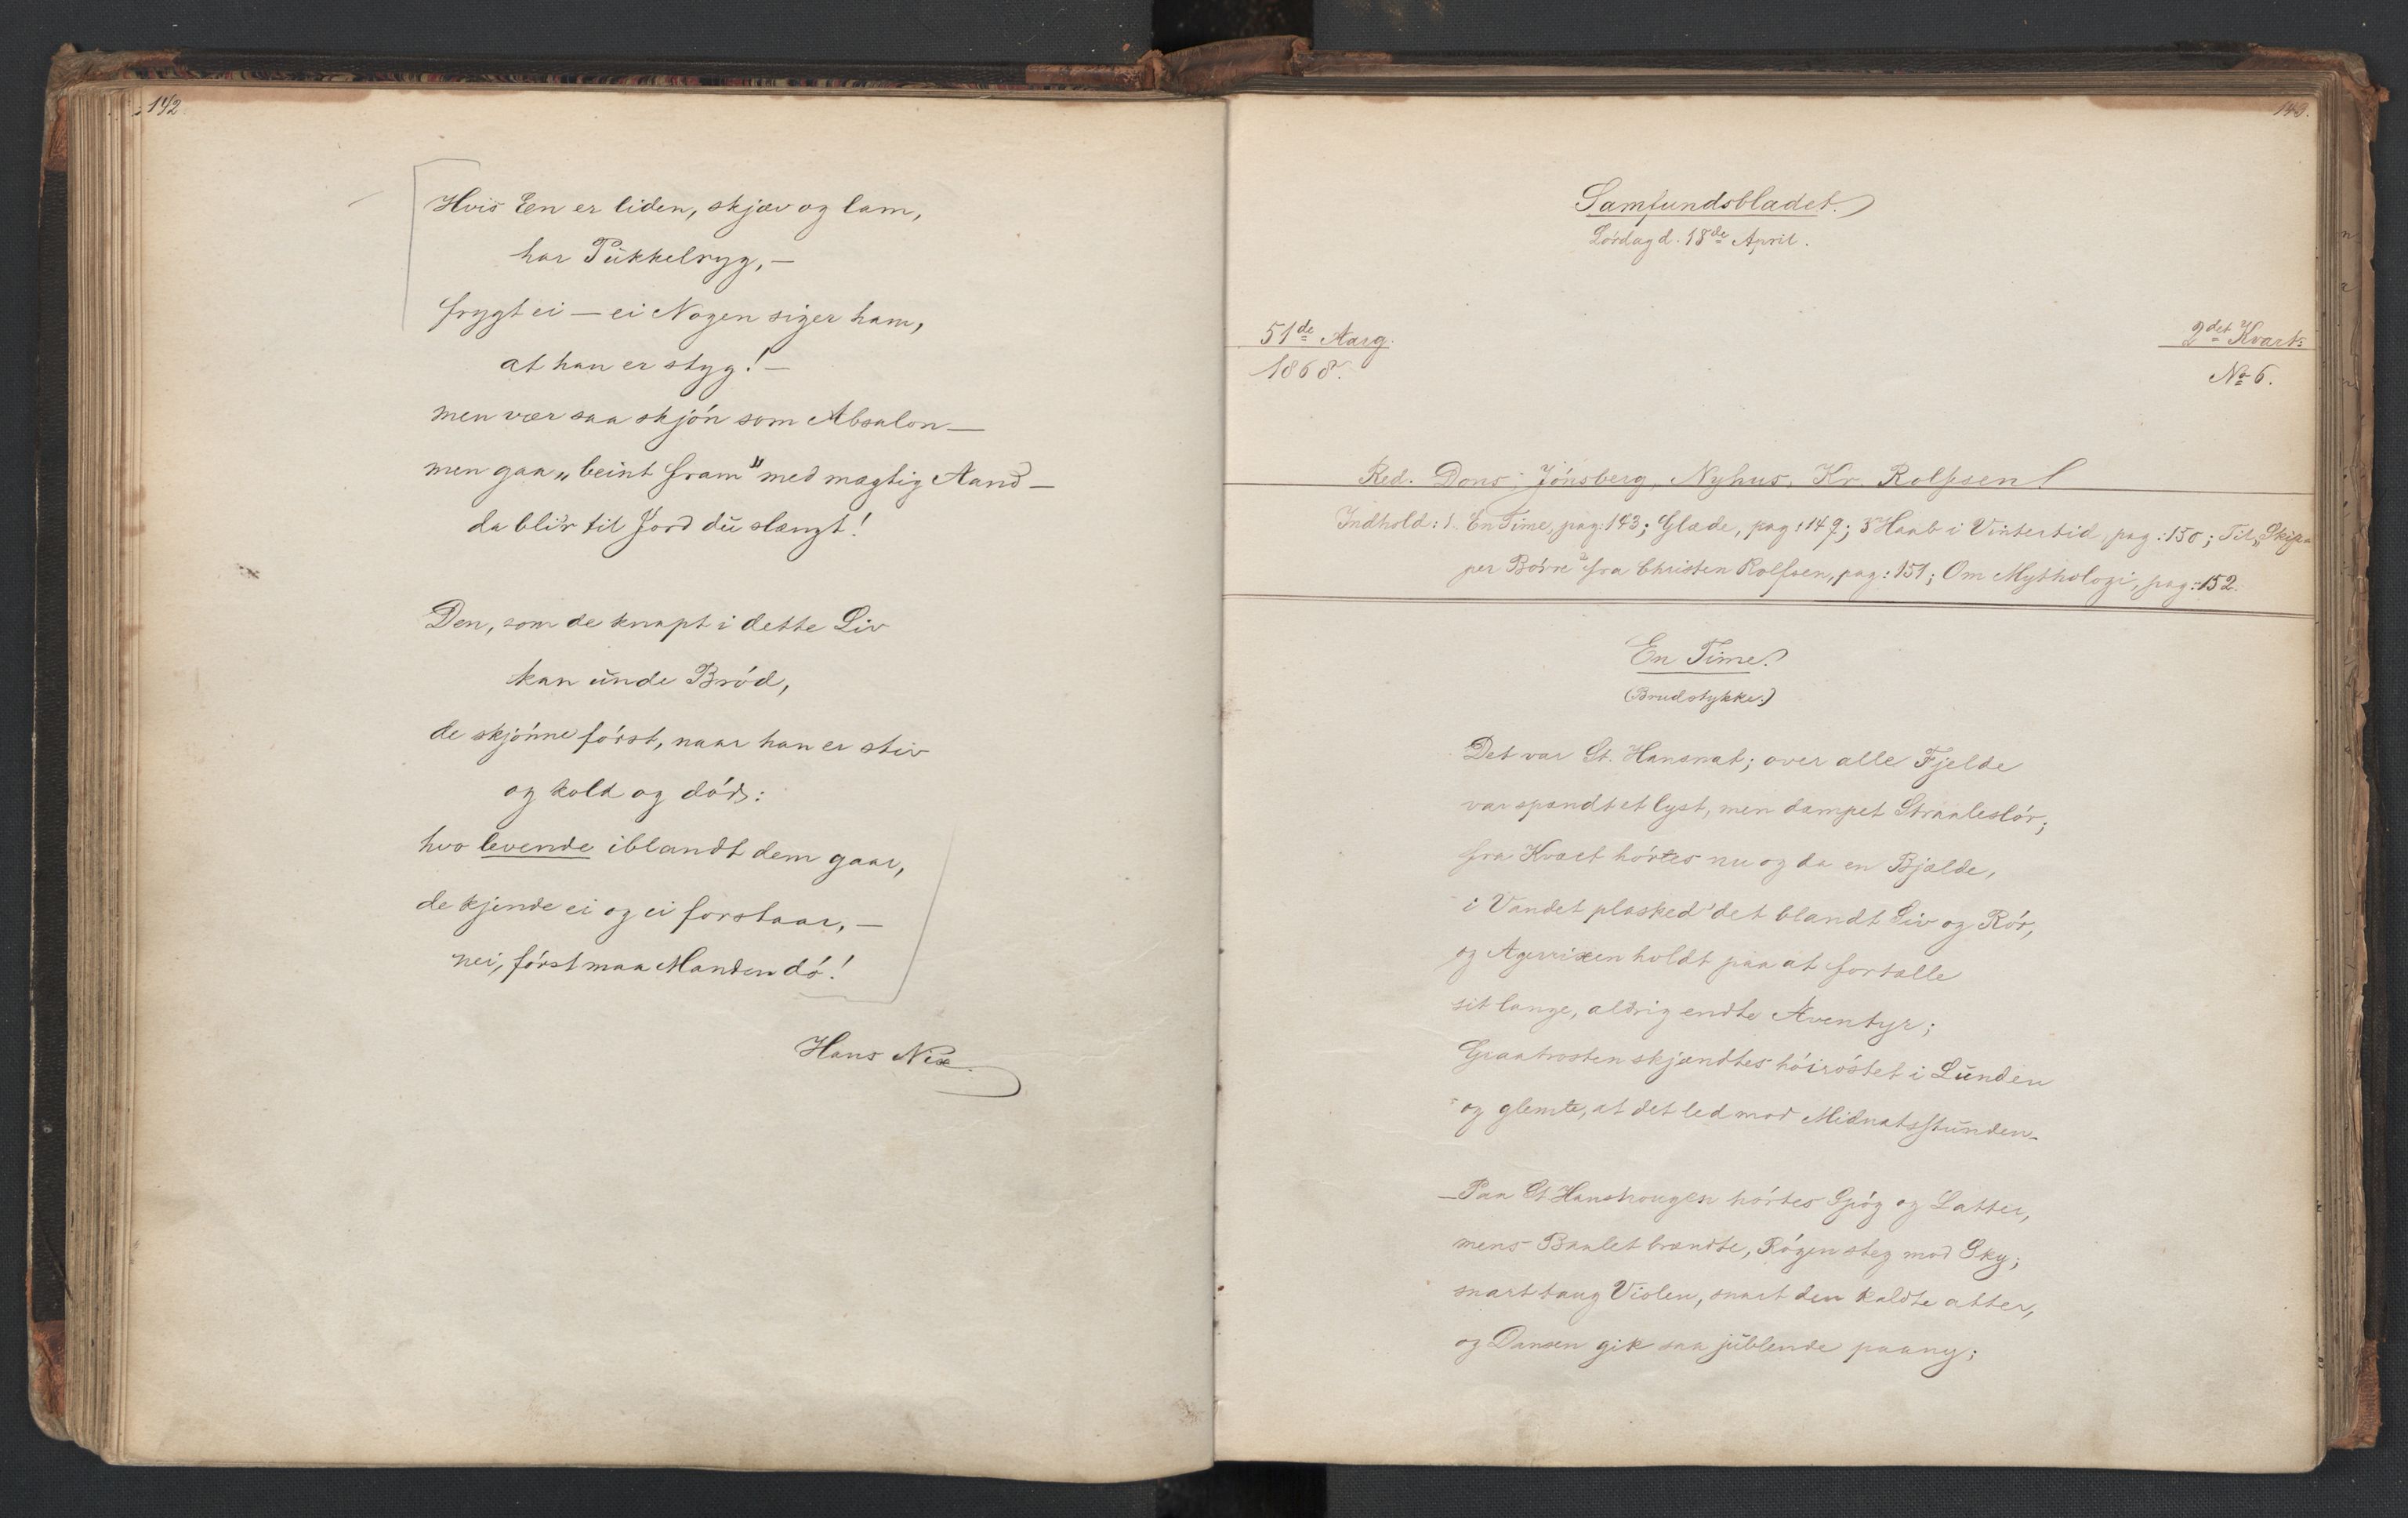 142.
Hvis Een er liden, skjæv og lam,
har Pukkelryg, —
frygt ei — ei Nogen siger ham,
at han er styg! —
men vær saa skjön som Absalon —
men gaa „beint fram" med mægtig Aand —
da bli'r til Jord du slængt!
Den, som de knapt i dette Liv
kan unde Bröd,
de skjönne först, naar han er stiv
og kold og död:
hvo levende iblandt dem gaar,
de kjende ei og ei forstaar, —
nei, först maa Manden dö!
Hans Nix.
143.
Samfundsbladet.
Lördag d. 18de April.
51de Aarg.
1868.
2det Kvart:
No 6.
Red. Dons, Jönsberg, Nyhus, Kr. Rolfsen
Indhold: 1. En Time, pag: 143; Glæde, pag: 149; 3 Haab i Vintertid, pag: 150; Til „Skip-
per Börre" fra Christen Rolfsen, pag: 151; Om Mythologi, pag: 152.
En Time.
(Brudstykke.)
Det var St. Hansnat; over alle Fjelde
var spændt et lyst, men dæmpet Straaleslör;
fra Kvæet hörtes nu og da en Bjælde,
i Vandet plasked' det blandt Siv og Rör,
og Agerrixen holdt paa at fortælle
sit lange, aldrig endte Æventyr;
Graatrosten skjændtes höiröstet i Lunden
og glemte, at det led mod Midnatsstunden.
Paa St. Hanshougen hörtes Spög og Latter,
mens Baalet brændte, Rögen steg mod Sky;
snart taug Violen, snart den kaldte atter,
og Dansen gik saa jublende paany;